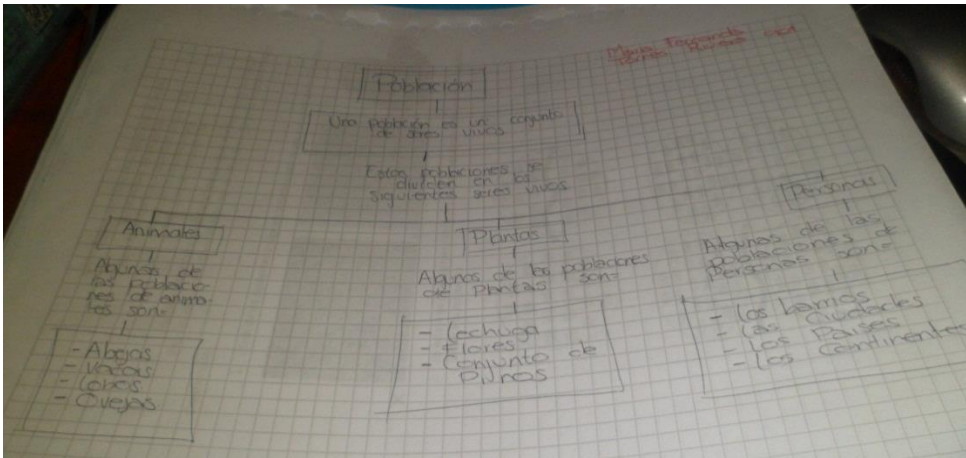 María Fernanda
Población
Una población es un conjunto
de seres vivos
Estas poblaciones se
dividen en los
siguientes seres vivos
Animales
Algunas de
las poblacio-
nes de anima-
les son=
- Abejas
- Vacas
- Lobos
- Ovejas
Plantas
Algunas de las poblaciones
de Plantas son=
- Lechuga
- Flores
- Conjunto de
Pinos
Personas
Algunas de las
poblaciones de
Personas son=
- Los barrios
- Las Ciudades
- Los Paises
- Los Continentes